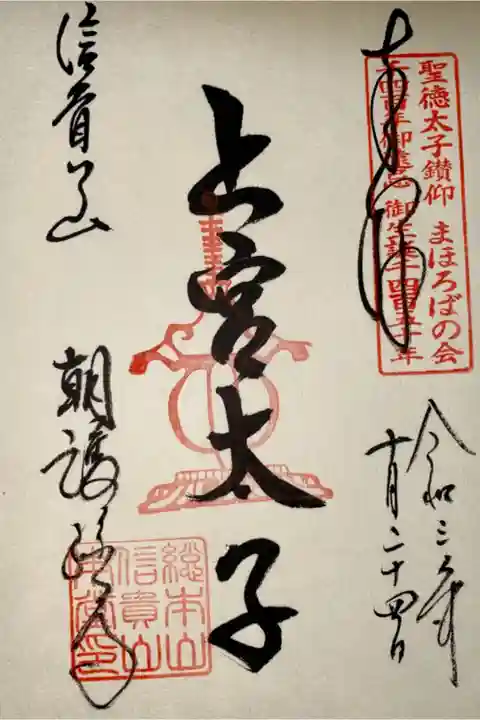 奉拝
聖徳太子讃仰 まほろばの会
千四百年御遠忌 御生誕千四百五十年
令和三年
十月二十四日
上宮太子
信貴山
朝護孫子寺
総本山
信貴山